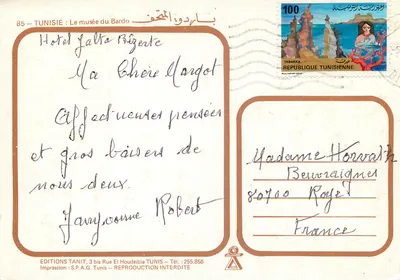 85 - TUNISIE : Le musée du Bardo
باردو: المتحف
Hotel Jalta Bizerte
Ma Chère Margot
Affectueuses pensées
et gros baisers de
nous deux.
Robert
100
TABARKA
REPUBLIQUE TUNISIENNE
Madame Horvath
Beuvraignes
80700 Roye
France
EDITIONS TANIT, 3 bis Rue El Houdeibia TUNIS - Tél. : 255.866
Impression : S.P.A.G. Tunis - REPRODUCTION INTERDITE